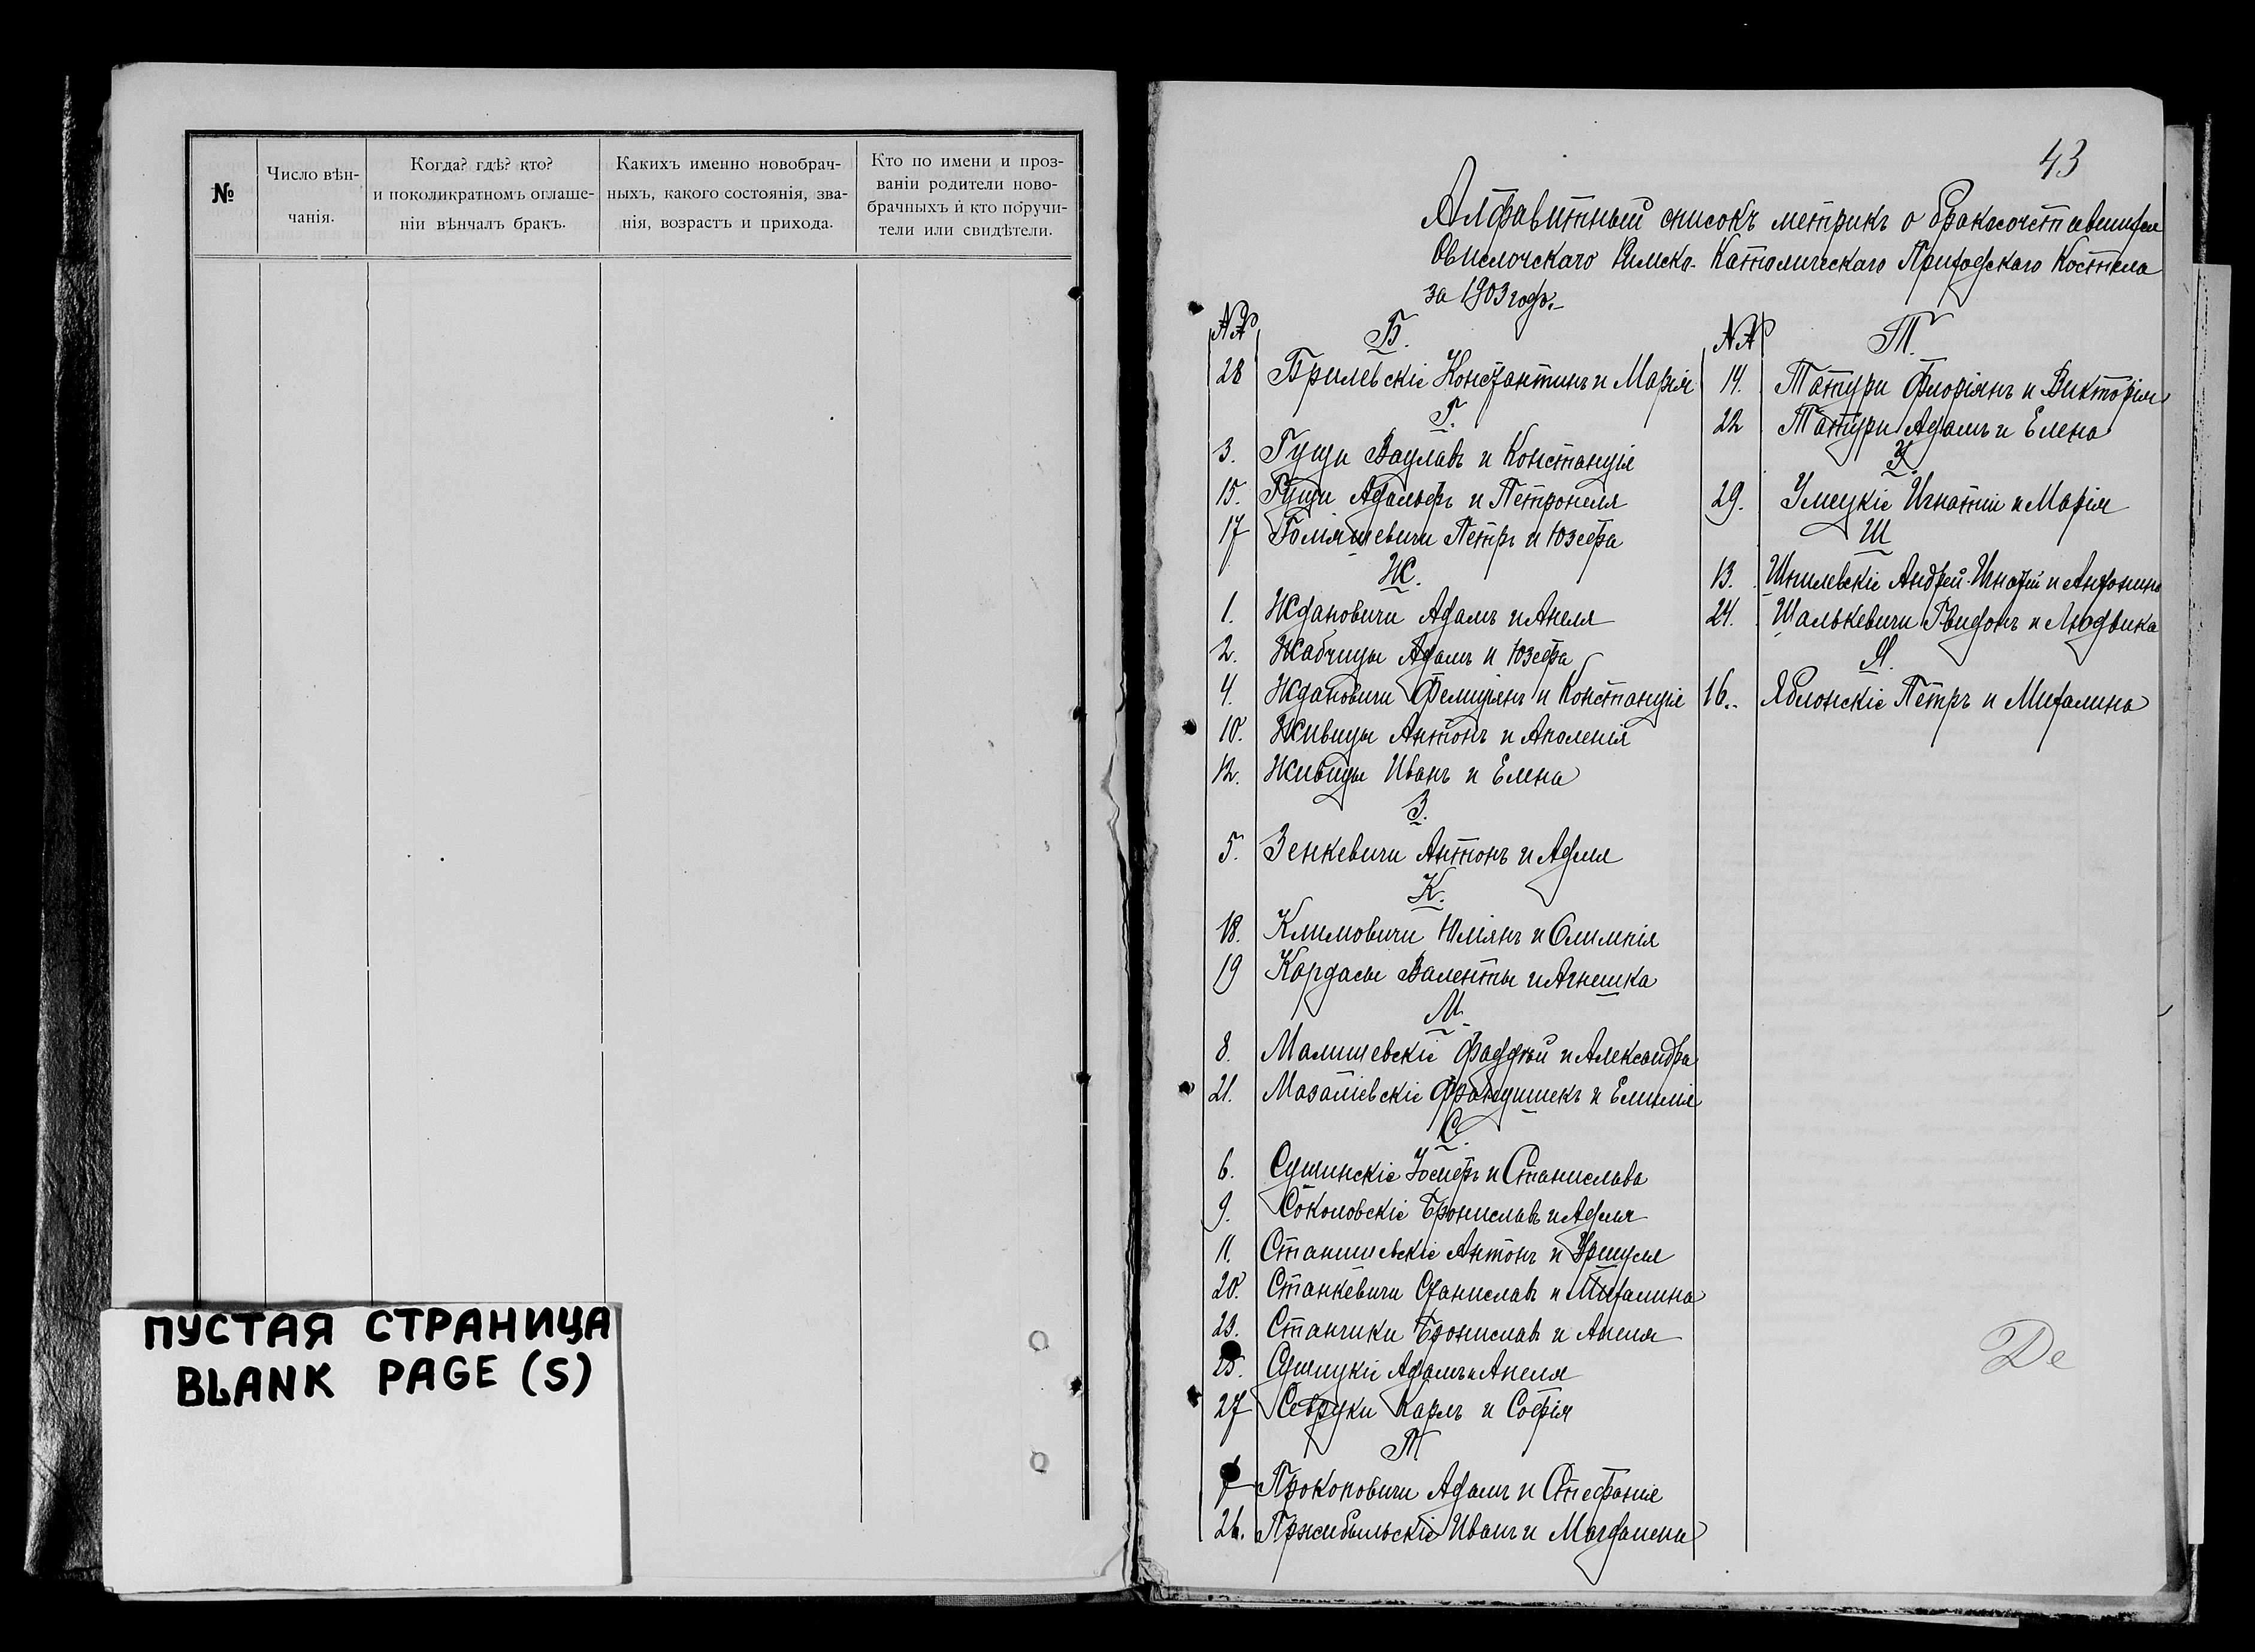 №
Число вѣн-
чанія.
Когда? гдѣ? кто?
и поколикратномъ оглаше-
ніи вѣнчалъ бракъ.
Какихъ именно новобрач-
ныхъ, какого состоянія, зва-
нія, возрастъ и прихода.
Кто по имени и проз-
ваніи родители ново-
брачныхъ и кто поручи-
тели или свидѣтели.
ПУСТАЯ СТРАНИЦА
BLANK PAGE (S)
43
Алфавитный списокъ метрикъ о бракосочетавшихся
Овислочскаго Римско-Католическаго Приходскаго Костела
за 1903 годъ.
№№
Б.
28 Брилевскіе Константинъ и Марія
Г.
3. Гущи Вацлавъ и Констанція
15. Гущи Адольфъ и Петронеля
17 Голіяшевичи Петръ и Юзефа
Ж.
1. Ждановичи Адамъ и Анеля
2. Жабчицы Адамъ и Юзефа
4. Ждановичи Фелиціянъ и Констанція
10. Живицы Антонъ и Аполенія
12. Живицы Иванъ и Елена
З.
5. Зенкевичи Антонъ и Аделя
К.
18. Климовичи Юліянъ и Олимпія
19 Кардасы Валенты и Агнешка
М.
8. Малишевскіе Фаддѣй и Александра
21. Мазалевскіе Францишекъ и Емилія
С.
6. Сушинскіе Іосифъ и Станислава
9. Соколовскіе Брониславъ и Аделя
11. Станишевскіе Антонъ и Уршуля
20. Станкевичи Станиславъ и Михалина
23. Станчики Брониславъ и Анеля
25. Адамъ и Анеля
27 Севруки Карлъ и Софія
П
7 Прокоповичи Адамъ и Стефанія
26. Пржибыльскіе Иванъ и Магдалена
№№
Т.
14. Татури Флоріянъ и Викторія
22 Татури Адамъ и Елена
У.
29. Умецкіе Игнатій и Марія
Ш
13. Шпилевскіе Андрей-Игнатій и Антонина
24. Шалькевичи Гвидонъ и Людвика
Я.
16. Яблонскіе Петръ и Михалина
De